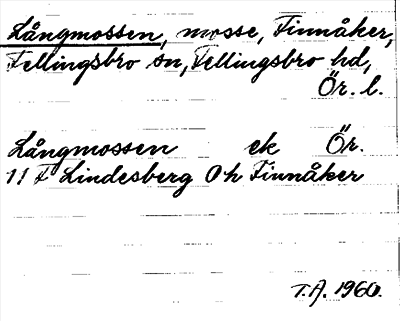 Långmossen, mosse, Finnåker,
Fellingsbro sn, Fellingsbro hd,
Ör. l.
Långmossen ek Ör.
11 F Lindesberg Oh Finnåker
T.A. 1960.